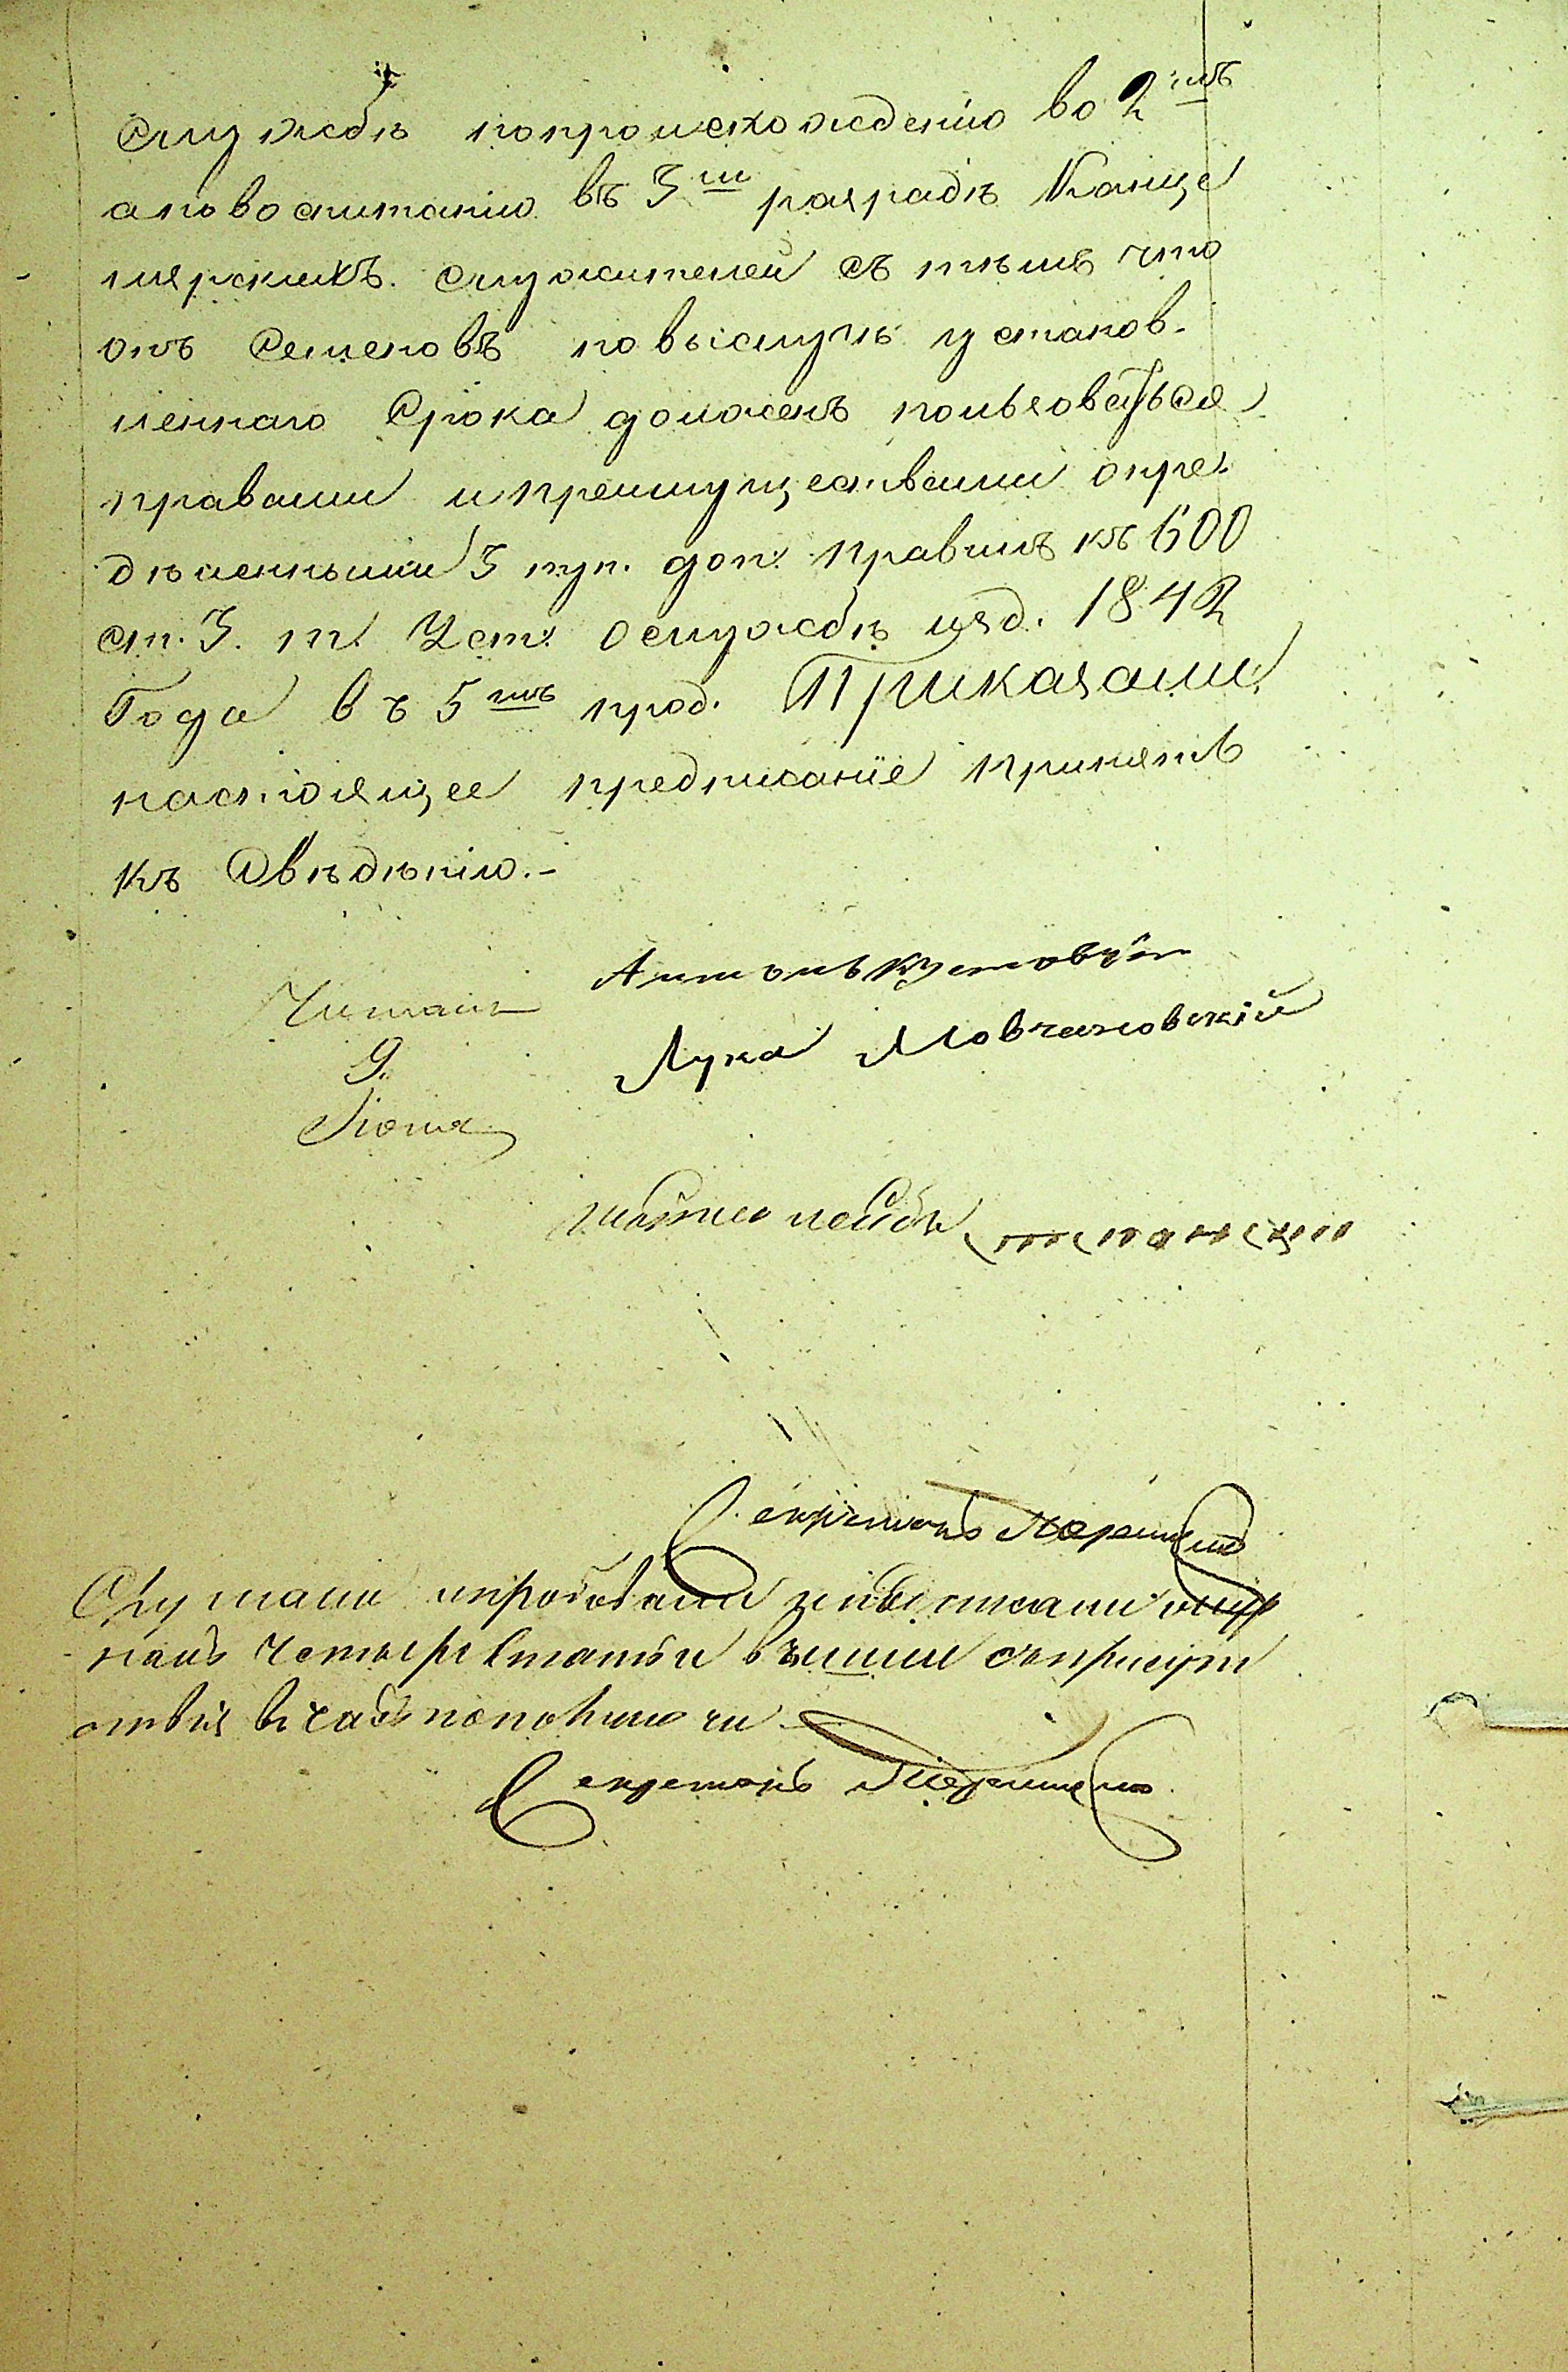 службѣ попроисхожденію во 2мъ
аповоспитанію въ 3м разрядѣ Канце
лярскихъ служителей съ тѣмъ что
онъ Семеновъ повыслугѣ установ-
леннаго Срока долженъ пользоваться
правами ипреимуществами опре-
дѣленными 3 пун. доп. правилъ къ 600
ст. 3. т. Уст. ослужбѣ изд. 1842
Года въ 5мъ прод. Приказали
настоящее предписаніе принять
къ Свѣдѣнію.-
Читалъ
9.
Іюня
Антонъ
Лука Мовчановскій
Секретарь
Слушали ипробовали иподписали
налъ Четыре Статьи вышли съприсут
ствія вчасъ пополуночи
Секретарь